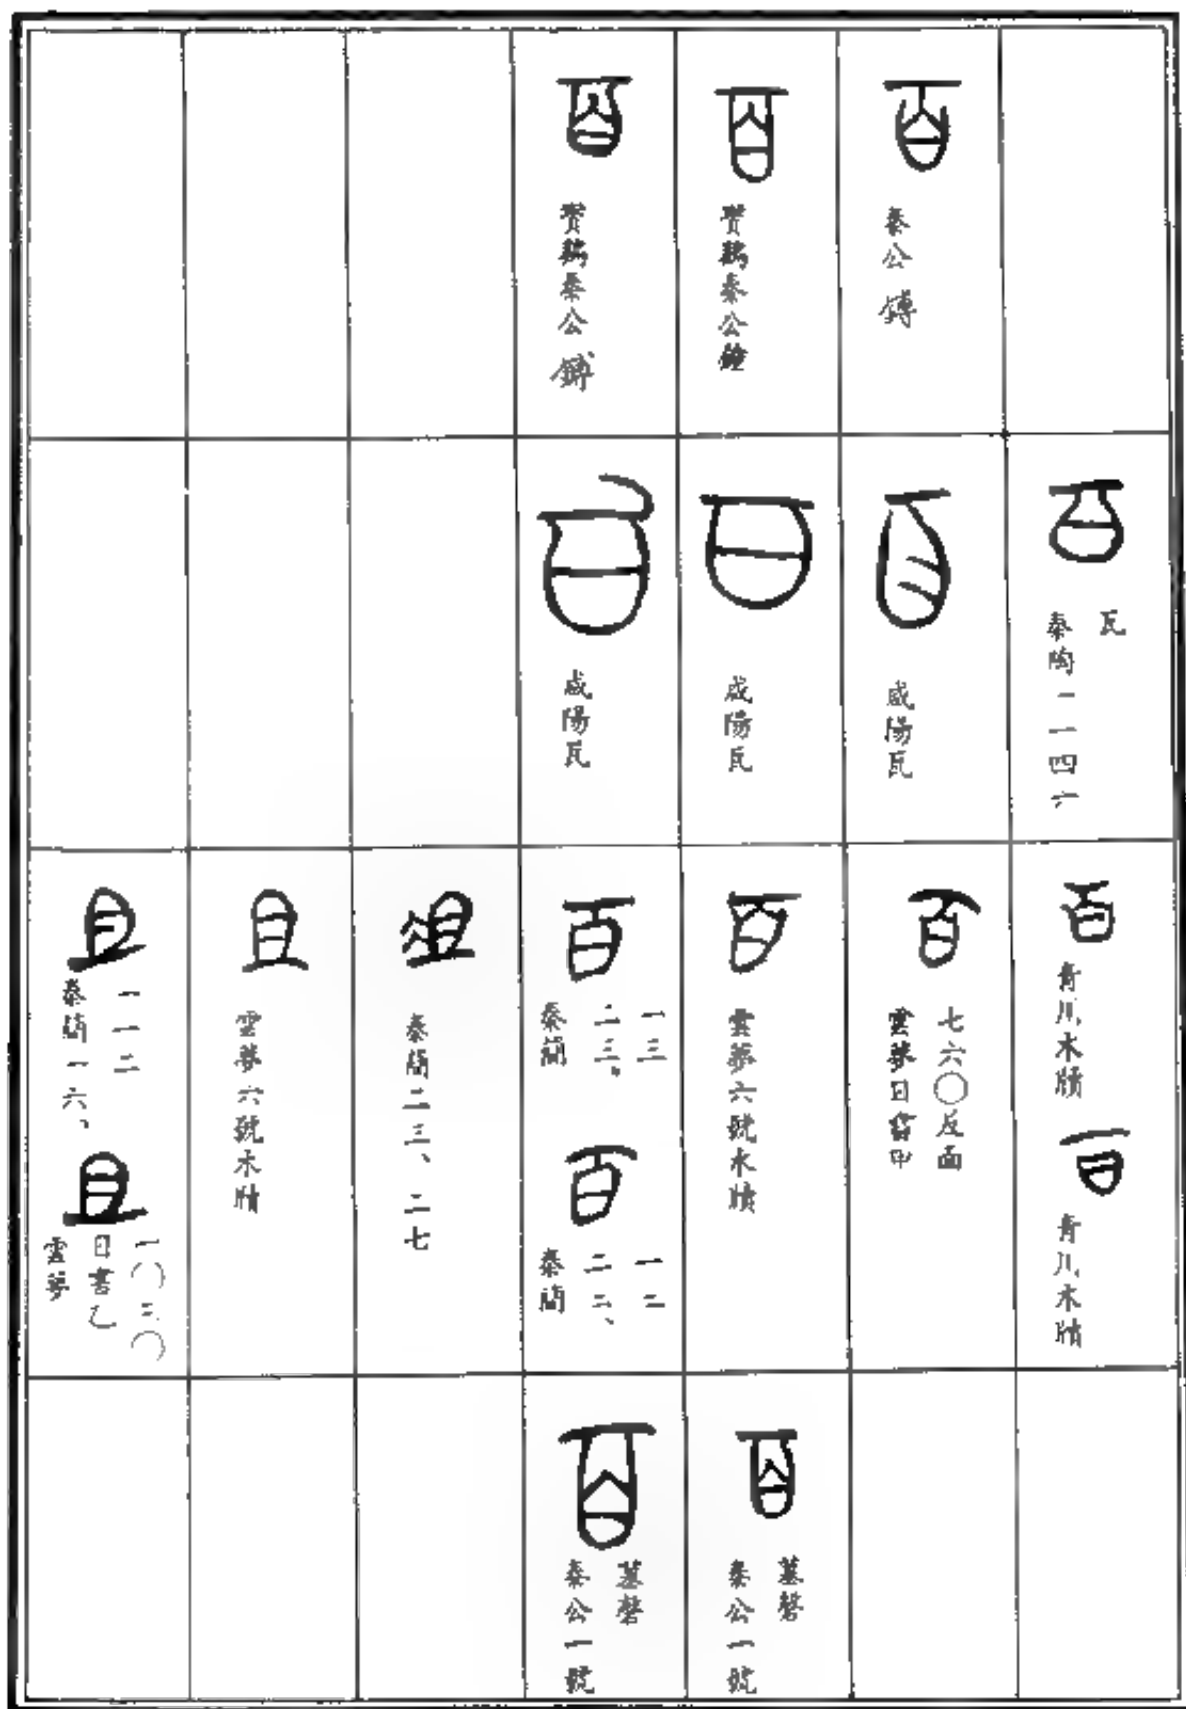 百
秦公鎛
百
寶鷄秦公鐘
百
寶鷄秦公鎛
百
瓦
秦陶一一四六
百
咸陽瓦
百
咸陽瓦
百
咸陽瓦
百
青川木牘
百
青川木牘
百
七六〇反面
雲夢日書甲
百
雲夢六號木牘
百
一三
二三、
秦簡
百
一二
二二、
秦簡
俎
秦簡二三、二七
且
雲夢六號木牘
且
一一二
秦簡一六、
且
一〇三〇
日書乙
雲夢
百
墓磬
秦公一號
百
墓磬
秦公一號